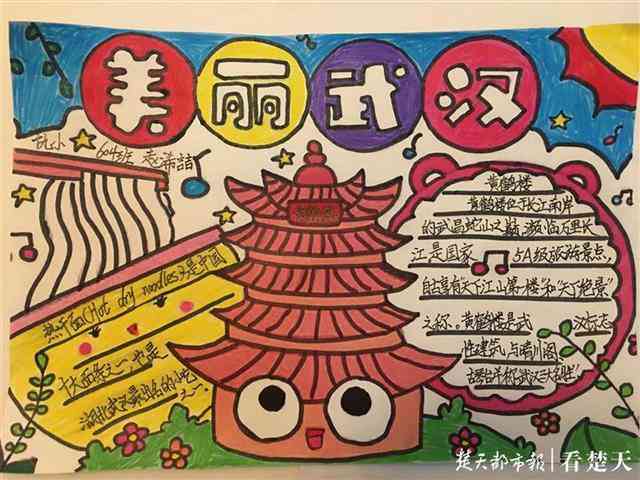 美丽武汉
604班 袁希喆
热干面(Hot dry noodles)是中国
十大面条之一，也是
湖北武汉最出名的小吃
之一.
黄鹤楼
黄鹤楼位于长江南岸
的武昌蛇山之巅，濒临万里长
江，是国家5A级旅游景点，
自古享有“天下江山第一楼”和“天下绝景”
之称。黄鹤楼是武汉标志
性建筑，与晴川阁、
古琴台并称“武汉三大名胜”
楚天都市报|看楚天